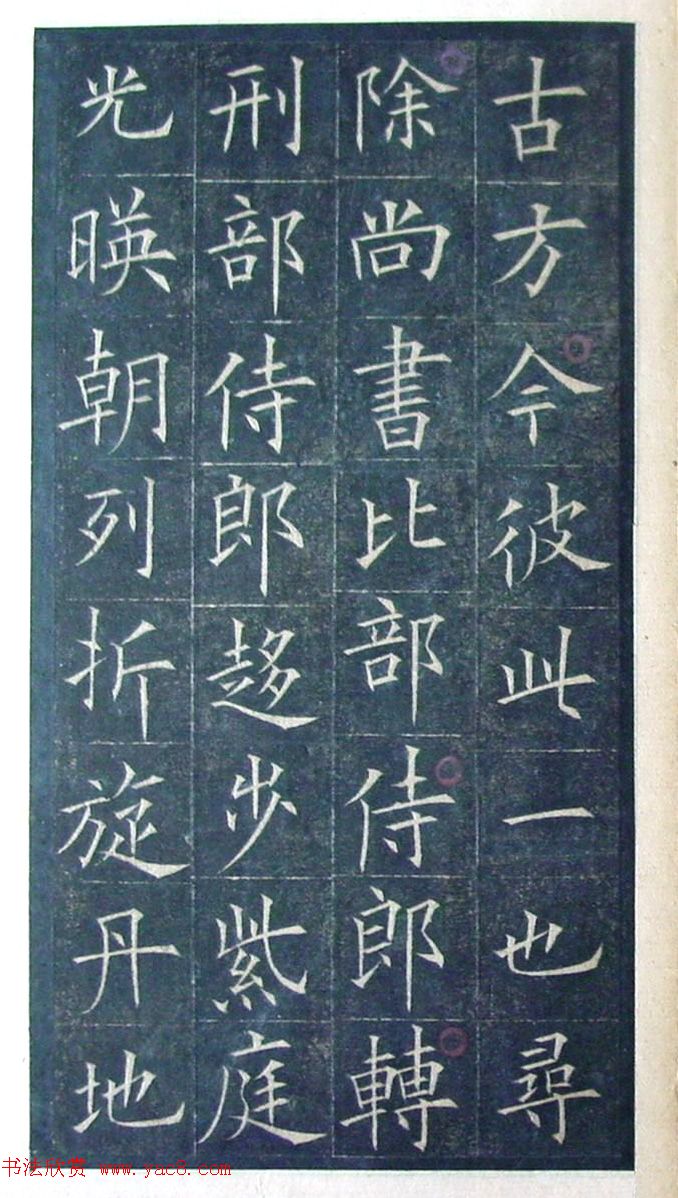 古方今彼此一也尋
除尚書比部侍郎轉
刑部侍郎趍步紫庭
光暎朝列折旋丹地
书法欣赏 www.yac8.com